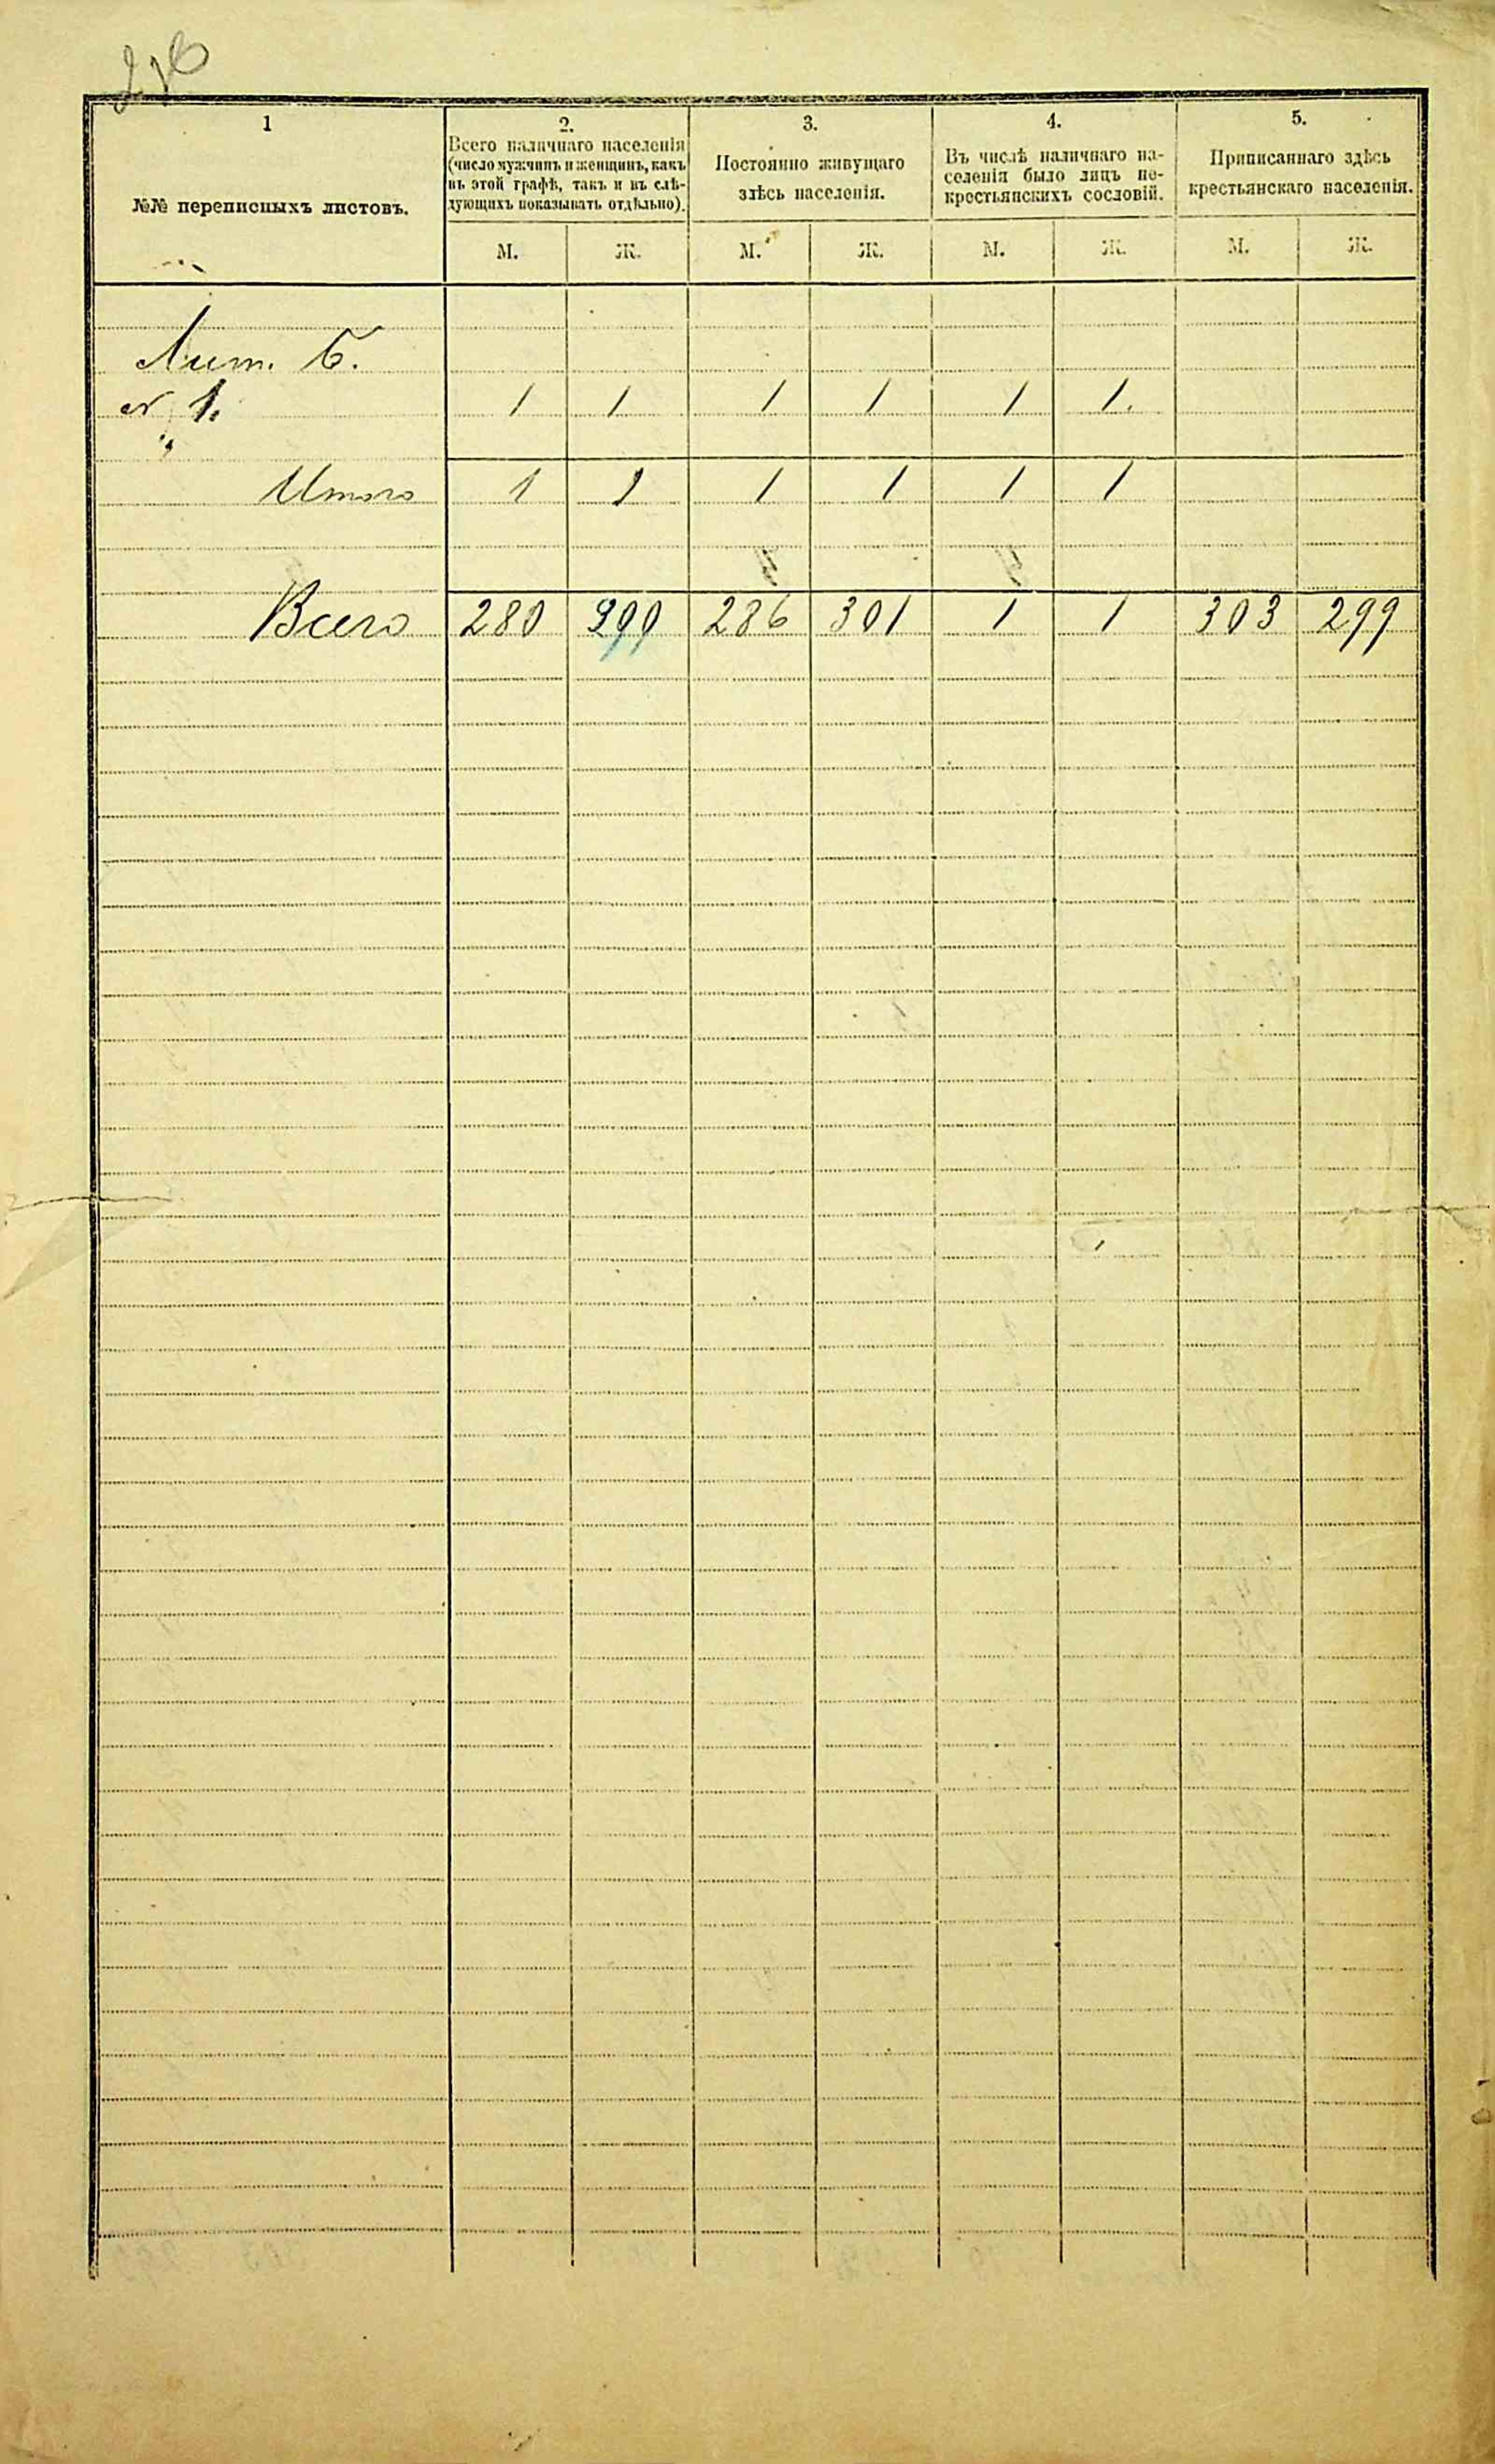 1
№№ переписныхъ листовъ.
2.
Всего наличнаго населенія
(число мужчинъ и женщинъ, какъ
въ этой графѣ, такъ и въ слѣ-
дующихъ показывать отдѣльно).
3.
Постоянно живущаго
здѣсь населенія.
4.
Въ числѣ наличнаго на-
селенія было лицъ не-
крестьянскихъ сословій.
5.
Приписаннаго здѣсь
крестьянскаго населенія.
М. Ж. М. Ж. М. Ж. М. Ж.
Лит. Б.
№ 1. 1 1 1 1 1 1.
Итого 1 1 1 1 1 1
Всего 280 299 286 301 1 1 303 299